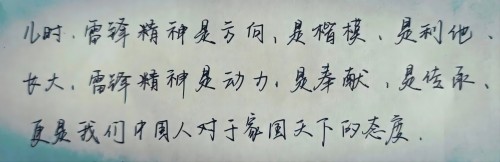 儿时，雷锋精神是方向，是楷模，是利他、
长大，雷锋精神是动力，是奉献，是传承、
更是我们中国人对于家国天下的态度.